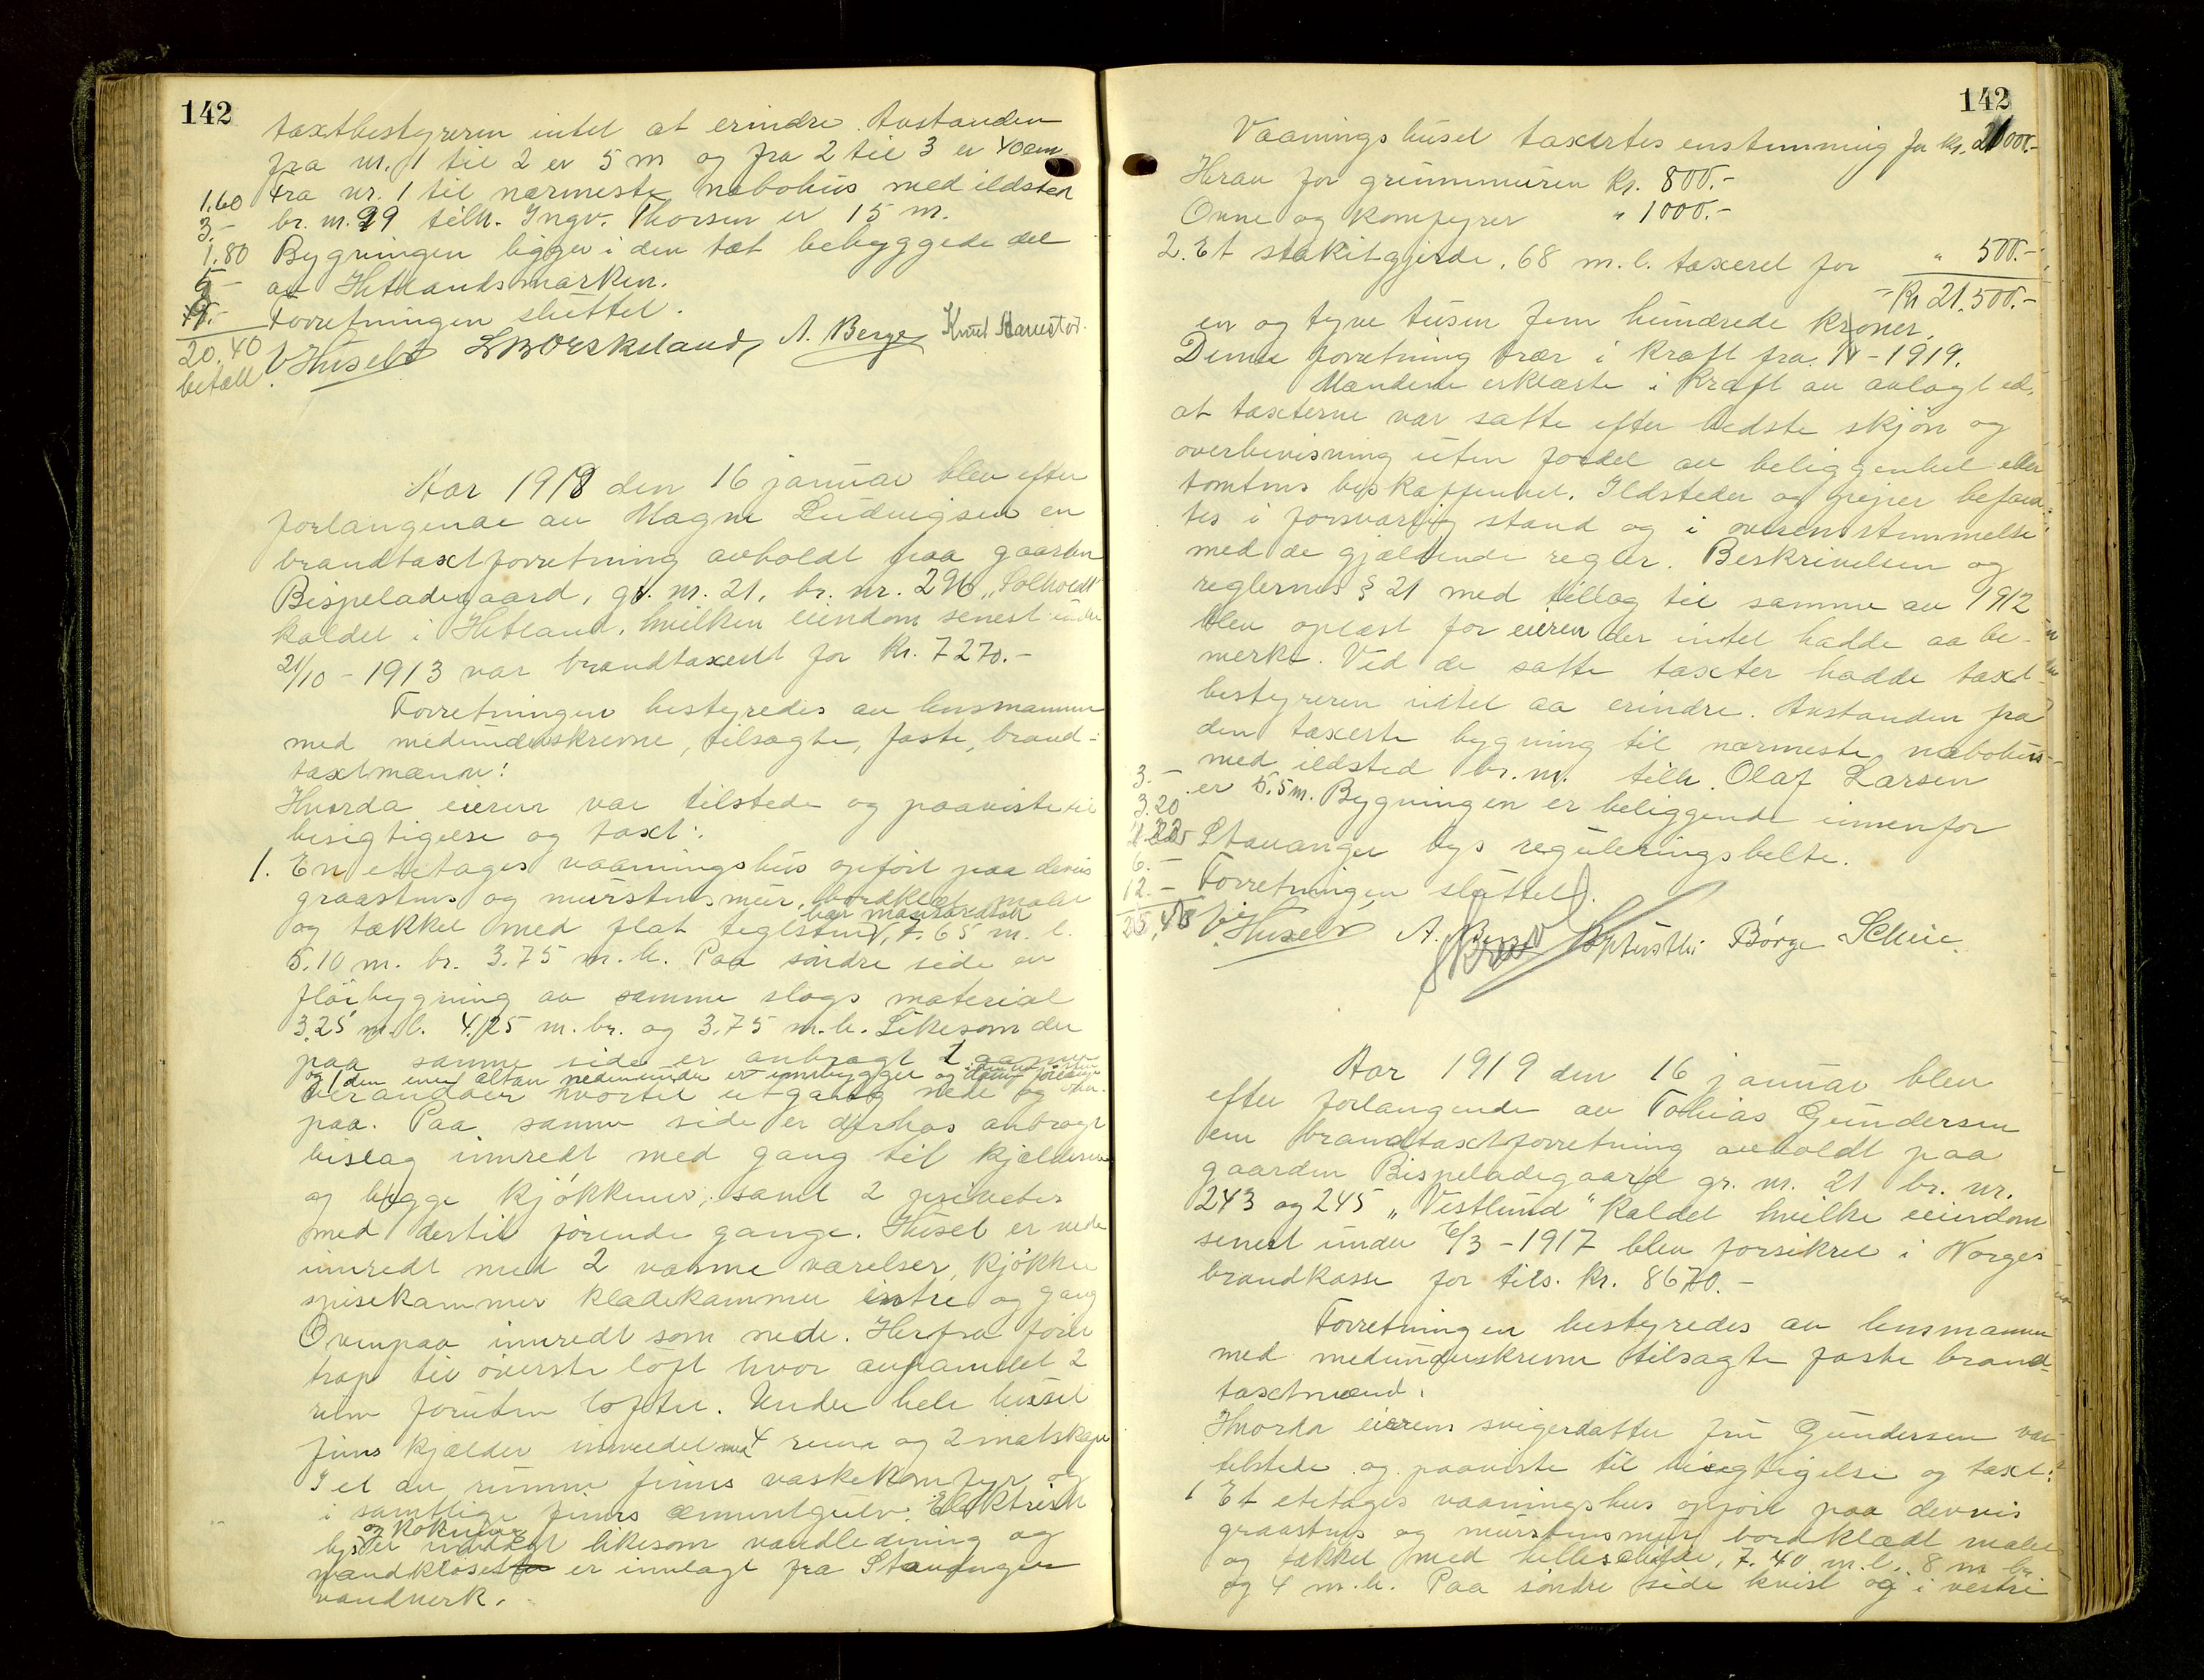 142
taxtbestyreren intet at erindre. Avstanden
fra nr. 1 til 2 er 5 m og fra 2 til 3 er 40 cm.
1.60 Fra nr. 1 til nærmeste nabohus med ildsted
3.- br. nr. 99 tilh. Ingv. Thorsen er 15 m.
1.80 Bygningen ligger i den tæt bebyggede del
5 - av Hetlandsmarken.
Forretningen sluttet.
20.40 Husebø A. Berge
betalt
Aar 1918 den 16 januar blev efter
forlangende av Magne Ludvigsen en
brandtaxtforretning avholdt paa gaarden
Bispeladegaard, gr. nr. 21, br. nr. 296 „Solholdt"
kaldet i Hetland, hvilken eiendom senest under
21/10 - 1913 var brandtaxert for kr. 7270.-
Forretningen bestyredes av lensmannen
med medunderskrevne, tilsagte, faste, brand-
taxtmænn:
Hvorda eieren var tilstede og paaviste til
besigtigelse og taxt:
1. En etetages vaaningshus opført paa dervis
graastens og murstensmur, bordklædt malt
og tækket med flat teglsten, 7.65 m. l.
5.10 m. br. 3.75 m. h. Paa søndre side en
fløibygning av samme slags material
3.25 m. l. 4.25 m. br. og 3.75 m. h. Likesom der
paa samme side er anbragt 2 aapne
og den ene altan nedenunder er innbygget og
verandaer hvortil utgang nede og oven-
paa. Paa samme side er derhos anbragt
bislag innredt med gang til kjælderen
og begge kjøkkener, samt 2 priveter
med dertil førende gange. Huset er nede
innredt med 2 varme værelser, kjøkken
spisekammer klædekammer entre og gang
Ovenpaa innredt som nede. Herfra fører
trap til øverste loft hvor avpanelet 2
rum foruten loftet. Under hele huset
fins kjælder innredet med 4 rum og 2 matskape
I et av rummene finnes vaskekomfyr og
i samtlige finnes cementgulv. Elektrisk
og kokning
lys er innlagt likesom vandledning og
vandkloset er innlagt fra Stavanger
vandverk.
142
Vaaningshuset taxertes enstemmig for kr. 21000.-
Herav for grunnmuren kr. 800.-
Ovne og komfyrer " 1000.-
2. Et stakitgjerde, 68 m. l. taxeret for " 500.-
Kr 21.500.-
en og tyve tusen fem hundrede kroner.
Denne forretning trær i kraft fra - 1919.
Mændene erklærte i kraft av avlagt ed,
at taxterne var satte efter bedste skjøn og
overbevisning uten fordel av beliggenhet eller
tomtens beskaffenhet. Ildsteder og grejer befand-
tes i forsvarlig stand og i overensstemmelse
med de gjældende regler. Beskrivelsen og
reglernes § 21 med tillæg til samme av 1912
blev oplæst for eieren der intet hadde aa be-
merke. Ved de satte taxter hadde taxt-
bestyreren intet aa erindre. Avstanden fra
den taxerte bygning til nærmeste nabohus
3.- med ildsted br. nr. tilh. Olaf Larsen
3.20 er 5.5 m. Bygningen er beliggende innenfor
Stavanger bys reguleringsbelte.
6.-
12.- Forretningen sluttet.
Husebø A. Berge Børge Scheie.
Aar 1919 den 16 januar blev
efter forlangende av Tobias Gundersen
en brandtaxtforretning avholdt paa
gaarden Bispeladegaard gr. nr. 21 br. nr.
243 og 245 „Vestlund" kaldet hvilke eiendom
senest under 6/3 - 1917 blev forsikret i Norges
brandkasse for tils. kr. 8670.-
Forretningen bestyredes av lensmannen
med medunderskrevne tilsagte faste brand-
taxtmænd.
Hvorda eierens svigerdatter fru Gundersen var
tilstede og paaviste til besigtigelse og taxt:
1 Et etetages vaaningshus opført paa dervis
graastens og murstensmur bordklædt malet
og tækket med helleskifer, 7.40 m. l., 8 m br.
og 4 m. h. Paa søndre side kvist og i vestre